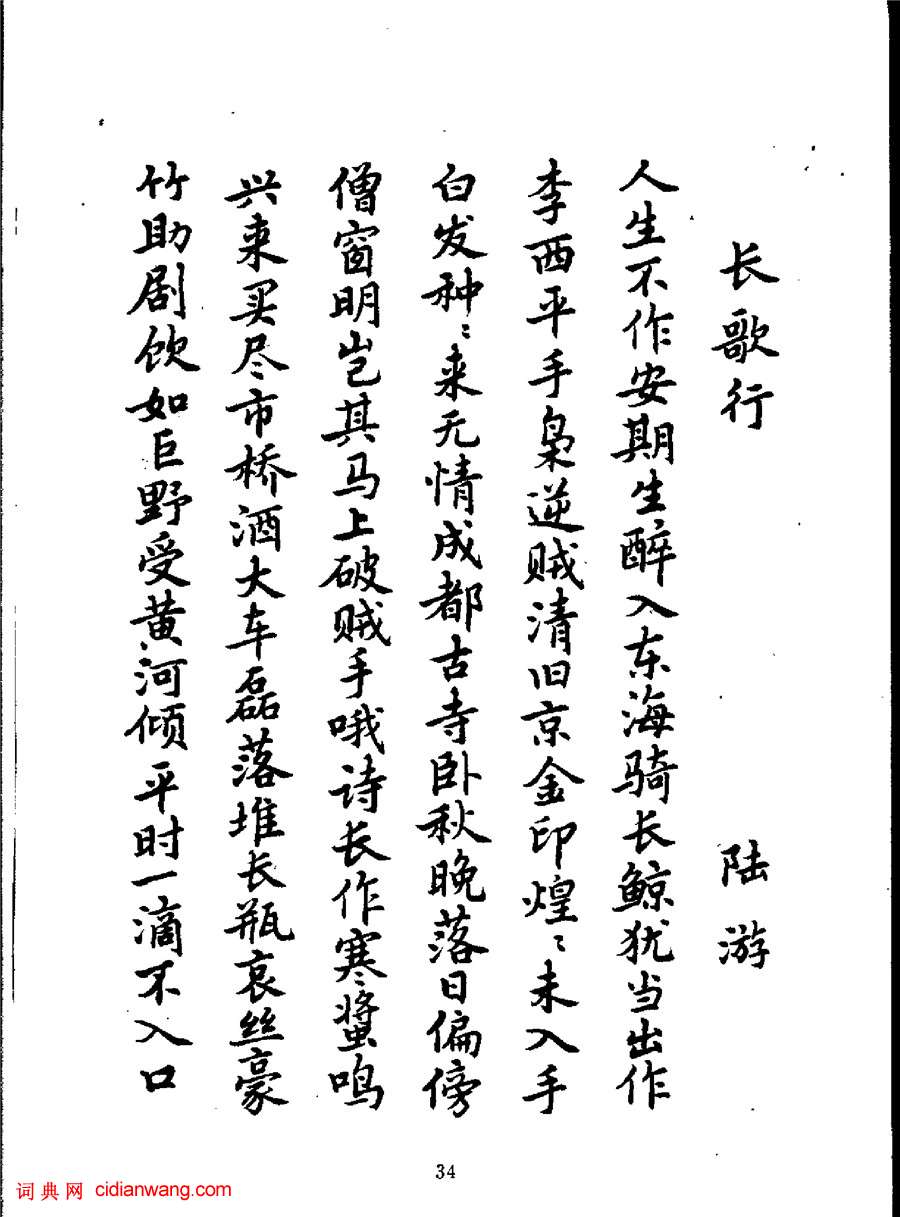 长歌行 陆游
人生不作安期生醉入东海骑长鲸犹当出作
李西平手枭逆贼清旧京金印煌〻未入手
白发种〻来无情成都古寺卧秋晚落日偏傍
僧窗明岂其马上破贼手哦诗长作寒螀鸣
兴来买尽市桥酒大车磊落堆长瓶哀丝豪
竹助剧饮如巨野受黄河倾平时一滴不入口
34
词典网 cidianwang.com